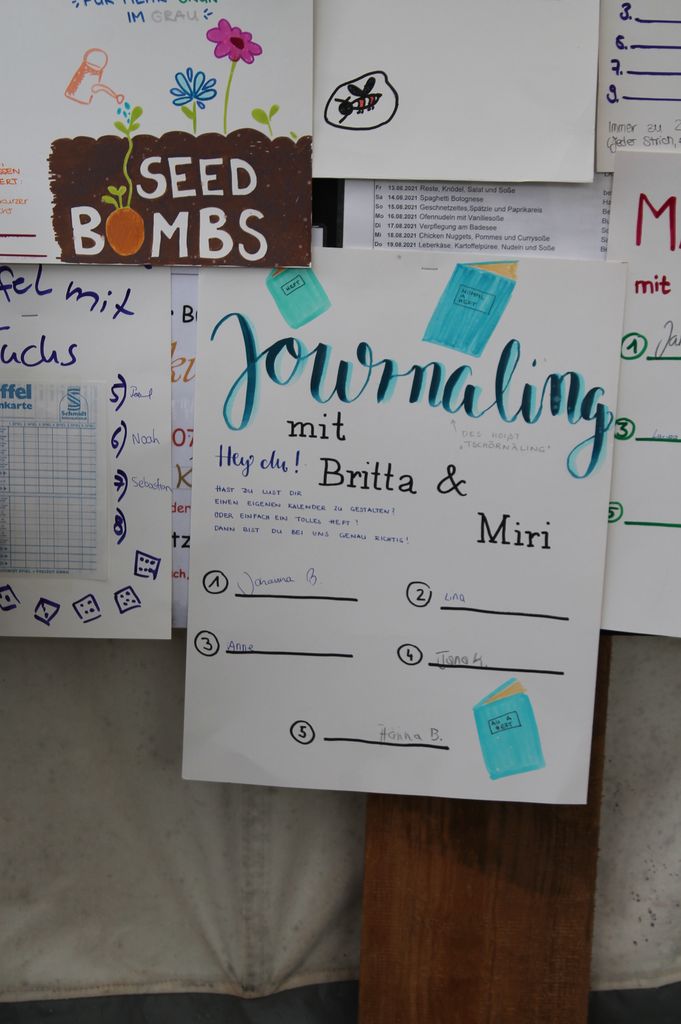 IM GRAU
SEED
BOMBS
3.
6.
7.
9.
Immer zu 2
(jeder Strich,
Fr 13.08.2021 Reste, Knödel, Salat und Soße
Sa 14.08.2021 Spaghetti Bolognese
So 15.08.2021 Geschnetzeltes, Spätzle und Paprikareis
Mo 16.08.2021 Ofennudeln mit Vanillesoße
Di 17.08.2021 Verpflegung am Badesee
Mi 18.08.2021 Chicken Nuggets, Pommes und Currysoße
Do 19.08.2021 Leberkäse, Kartoffelpüree, Nudeln und Soße
fel mit
uchs
ffel
nkarte
Schmidt
5)
6) Noah
7) Sebastian
8)
07
K
der
tz
M
mit
1 Ja
3
5
HEFT
Journaling
DES HOIßT
"TSCHÖRNÄLING"
mit
Hey du!
Britta &
Miri
HAST DU LUST DIR
EINEN EIGENEN KALENDER ZU GESTALTEN?
ODER EINFACH EIN TOLLES HEFT?
DANN BIST DU BEI UNS GENAU RICHTIG!
1 Johanna B.
2 Lina
3 Anne
4 Jana H.
5 Hanna B.
AU A
HEFT